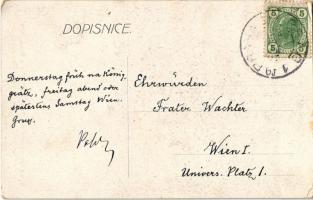 DOPISNICE.
Donnerstag früh na König
grätz, freitag abend oder
spätestens Samstag Wien.
Gruss.
Ehrwürden
Frater Wachter
Wien I.
Univers. Platz 1.
5
5
5
5